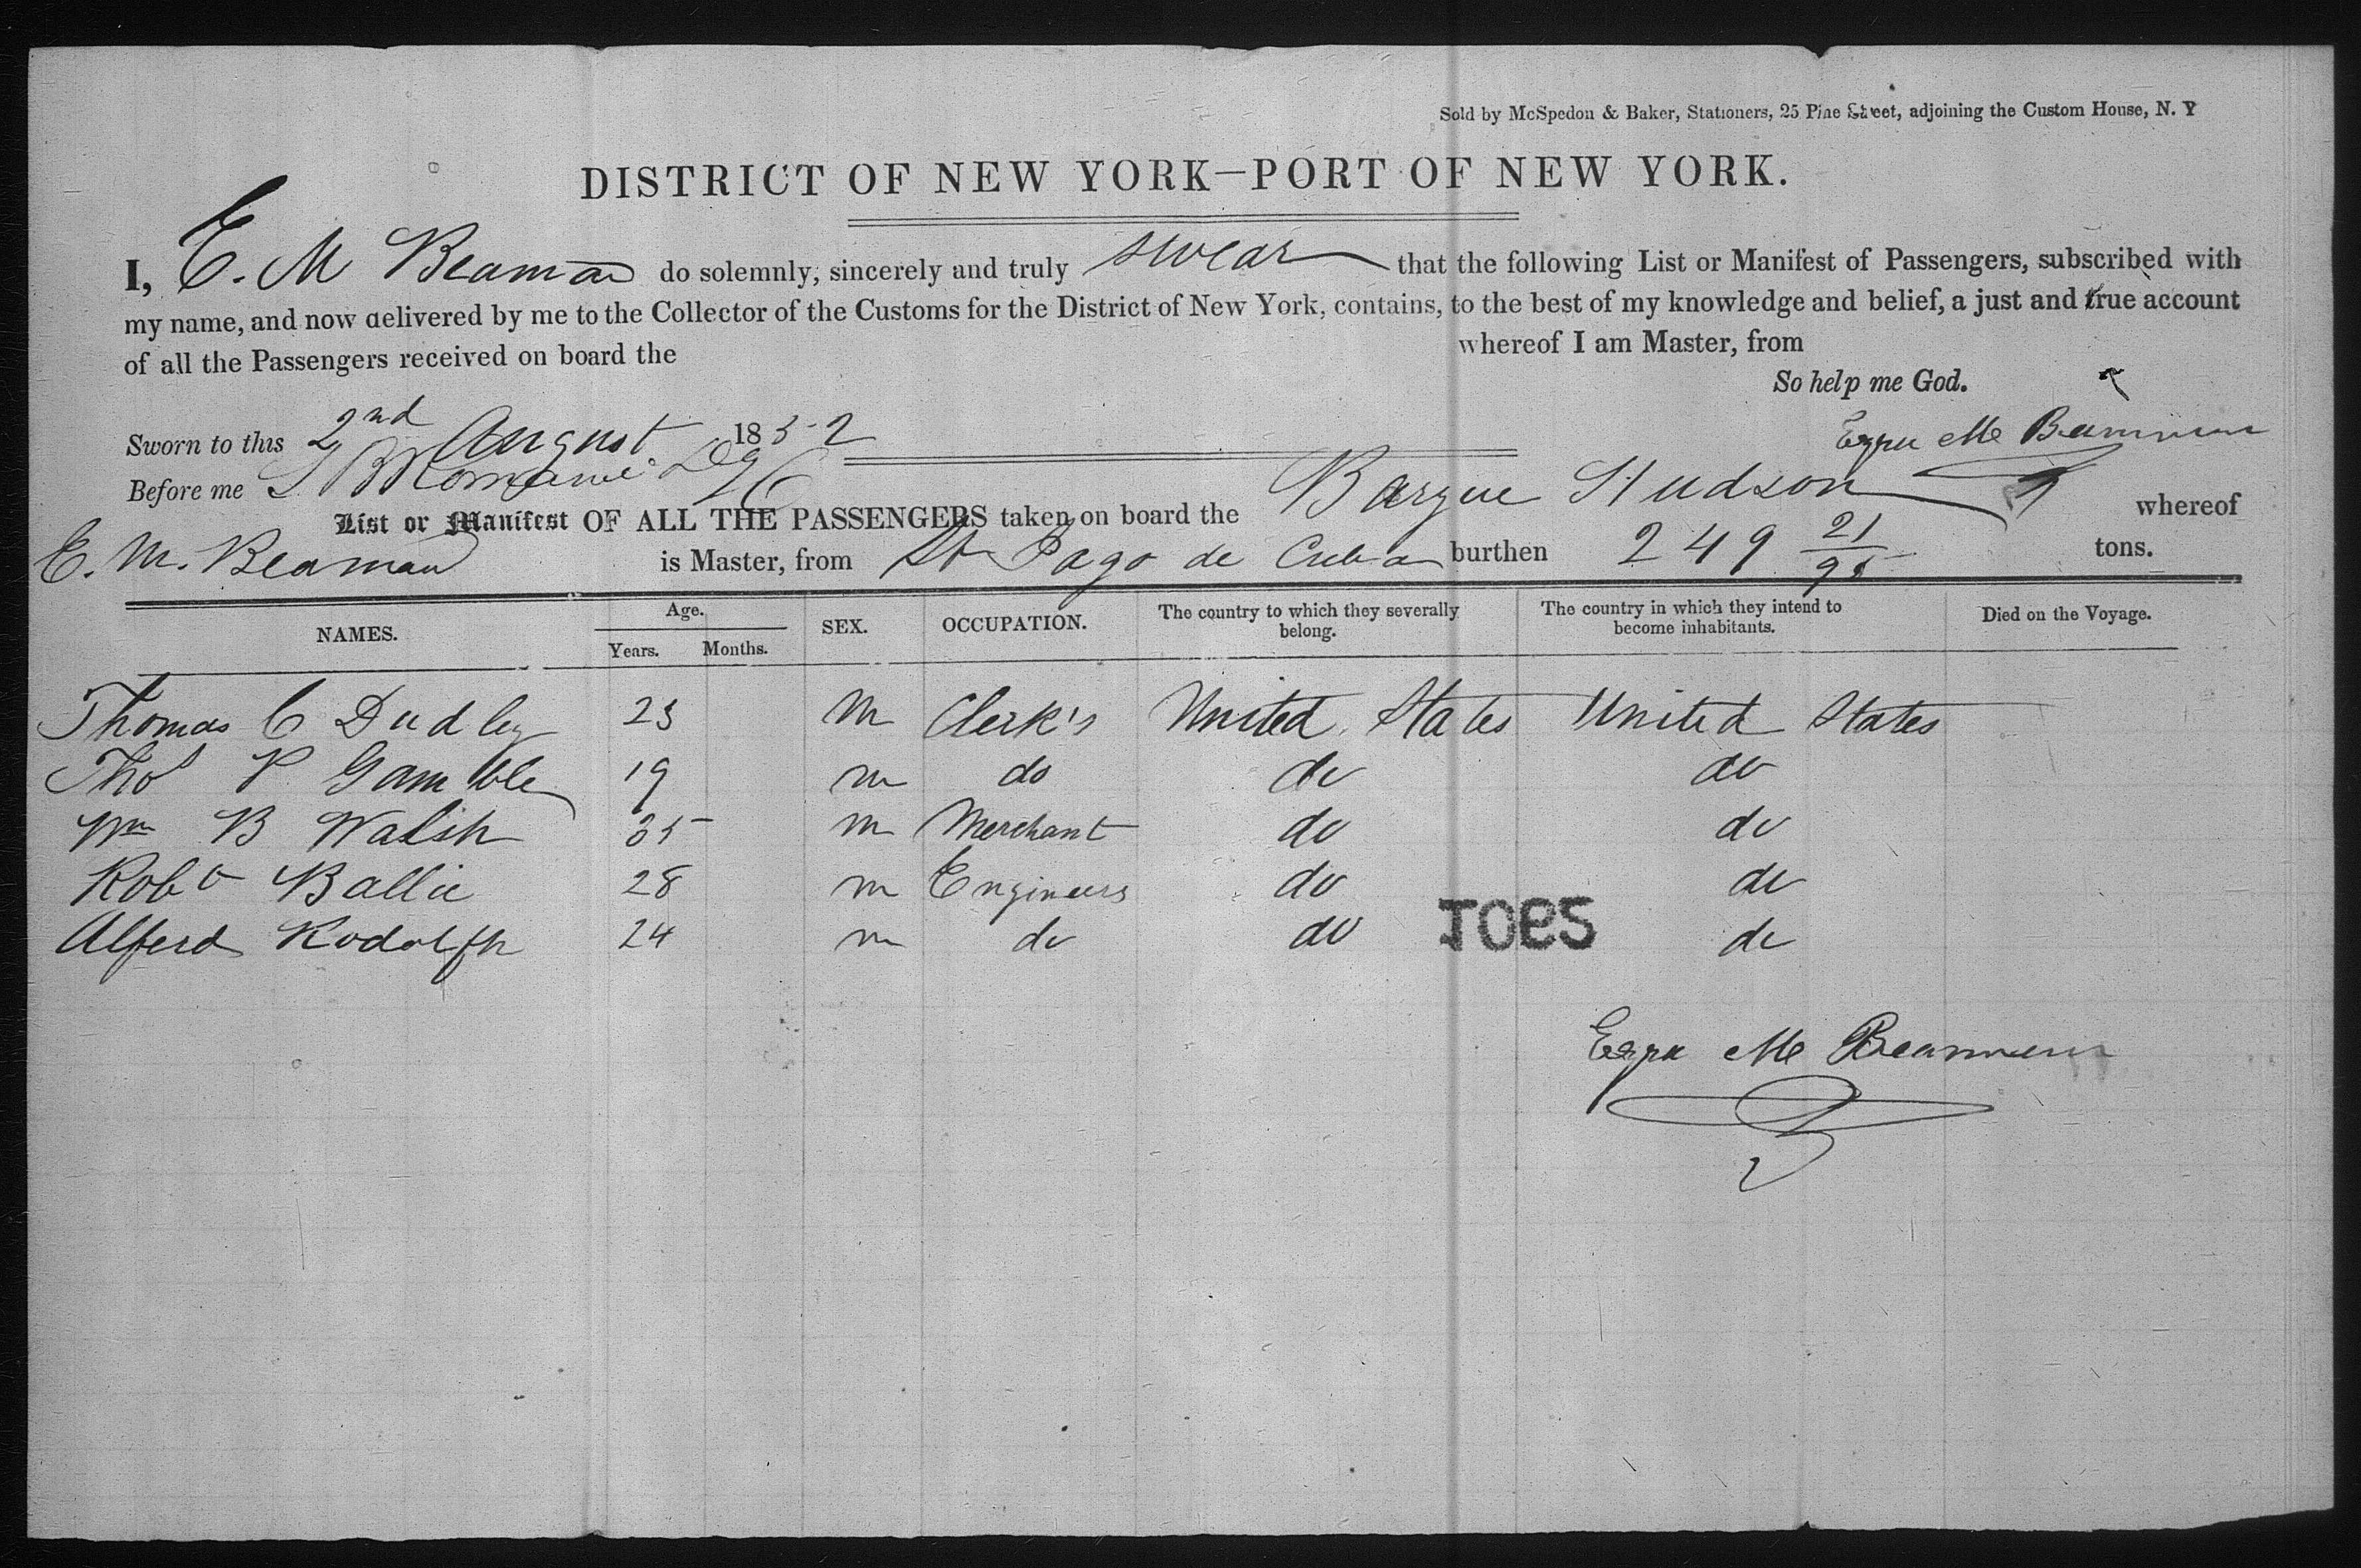 Sold by McSpedon & Baker, Stationers, 25 Pine Street, adjoining the Custom House, N. Y
DISTRICT OF NEW YORK—PORT OF NEW YORK.
I, E. M Beaman do solemnly, sincerely and truly swear that the following List or Manifest of Passengers, subscribed with
my name, and now delivered by me to the Collector of the Customs for the District of New York, contains, to the best of my knowledge and belief, a just and true account
of all the Passengers received on board the whereof I am Master, from
So help me God.
Sworn to this 2nd August 1852 Ezra M Beaman
Before me
List or Manifest OF ALL THE PASSENGERS taken on board the Barque Hudson whereof
E. M. Beaman is Master, from St Pago de Cuba burthen 249 21/95 tons.
NAMES. Age. Years. Months. SEX. OCCUPATION. The country to which they severally belong. The country in which they intend to become inhabitants. Died on the Voyage.
Thomas C Dudley 23 M Clerk's United States United States
Thos P Gamble 19 m do do do
Wm B Walsh 35 m Merchant do do
Robt Ballie 28 m Engineers do do
Alferd Rodolph 24 m do do do
Ezra M Beaman